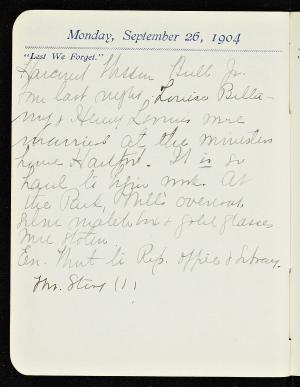 Monday, September 26, 1904
"Lest We Forget."
Bull Jr.
me last night. Louise Bella-
my & Henry Loomis were
married at the ministers
home Hartford. It is so
hard to begin work. At
the Park, Mills overcoat,
silver matchbox & gold glasses
were stolen.
Eve. Went to Rep. office & library.
Thr. Story (1)